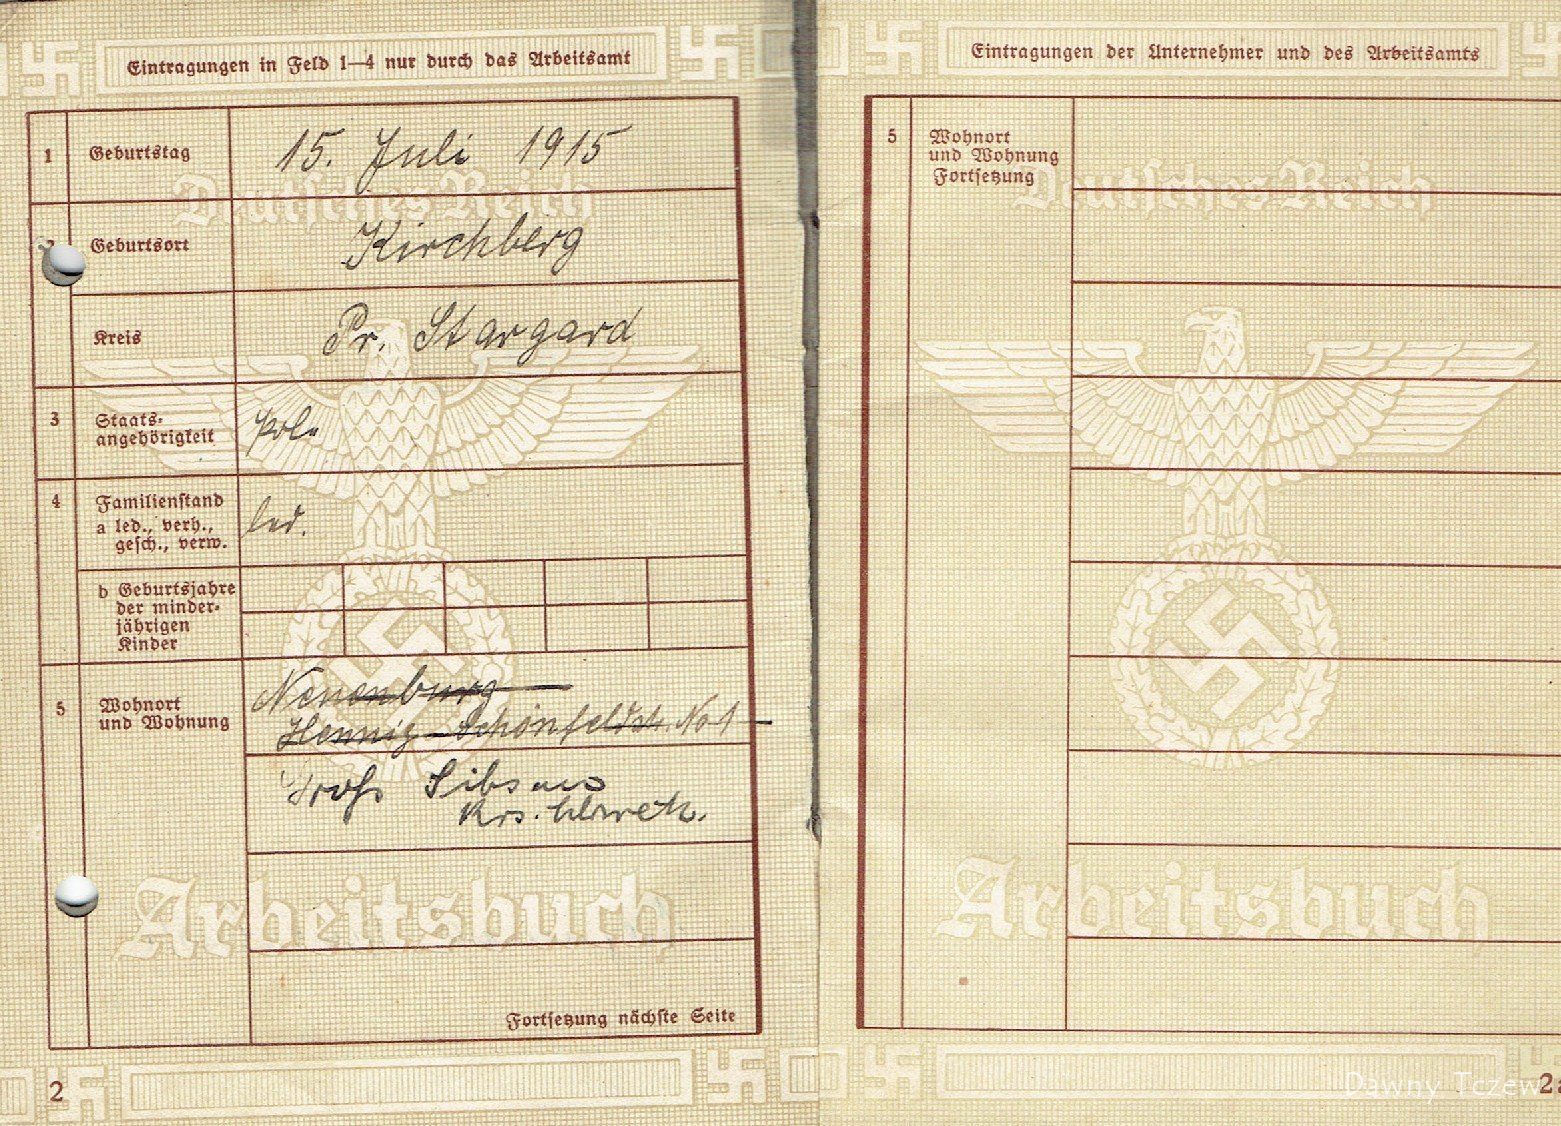 Eintragungen in Feld 1—4 nur durch das Arbeitsamt
1 Geburtstag 15. Juli 1915
Deutsches Reich
Geburtsort Kirchberg
Kreis Pr. Stargard
3 Staats-
angehörigkeit poln
4 Familienstand
a led., verh.,
gesch., verw. led.
b Geburtsjahre
der minder-
jährigen
Kinder
5 Wohnort
und Wohnung
Neuenburg
Hennig-Schönfeldstr. No 1
Groß Sibsau
Krs.
Arbeitsbuch
Fortsetzung nächste Seite
2
Eintragungen der Unternehmer und des Arbeitsamts
5 Wohnort
und Wohnung
Fortsetzung
Deutsches Reich
Arbeitsbuch
Dawny Tczew
2a